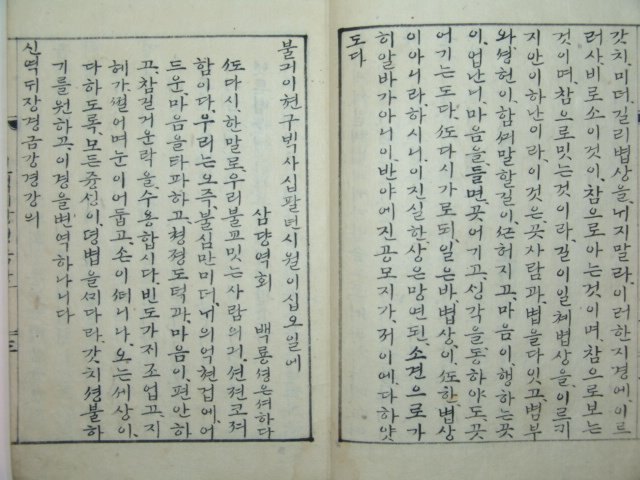 갓치、미더、길리볍상을、내지말라、이러한지경에、이르
러사、비로소이것이、참으로아는것이며、참으로보는
것이며、참으로밋는것이라、길이일체볍상을이르키
지안이하난이라、이것은곳사람과、볍을다잇고、볌부
와셩현이、함께말할길이、ᄭᅳᆫ허지고、마음이、행하는곳
이、업난니、마음을들면、곳어기고、싱각을동하야도、곳
어기는도다、ᄯᅩ다시가로되、일은바、볍상이、ᄯᅩ한볍상
이아니라、하시니、이진실한상은망연된、소견으로가
히알바가아니이、반야에진공모지가、져이에다하얏
도다
불긔이쳔구빅사십팔년시월이십오일에
삼쟝역회 백룡셩은셔하다
ᄯᅩ다시、한말로、우리불교밋는사람의긔、션젼코져
함이다、우리는오즉、불심만미더、내의억쳔겁에、어
드운、마음을타파하고、쳥졍도덕과、마음이、편안하
고、참길거운락을、수용합시다、빈도가저조업고、지
혜가、쩔어며눈이어둡고、손이ᄯᅥ니나、오는세상이、
다하도록、모든즁싱이、뎡볍을ᄭᅵ다라、갓치셩불하
기를원하고、이경을변역하나니다
신역뒤장경금강경강의